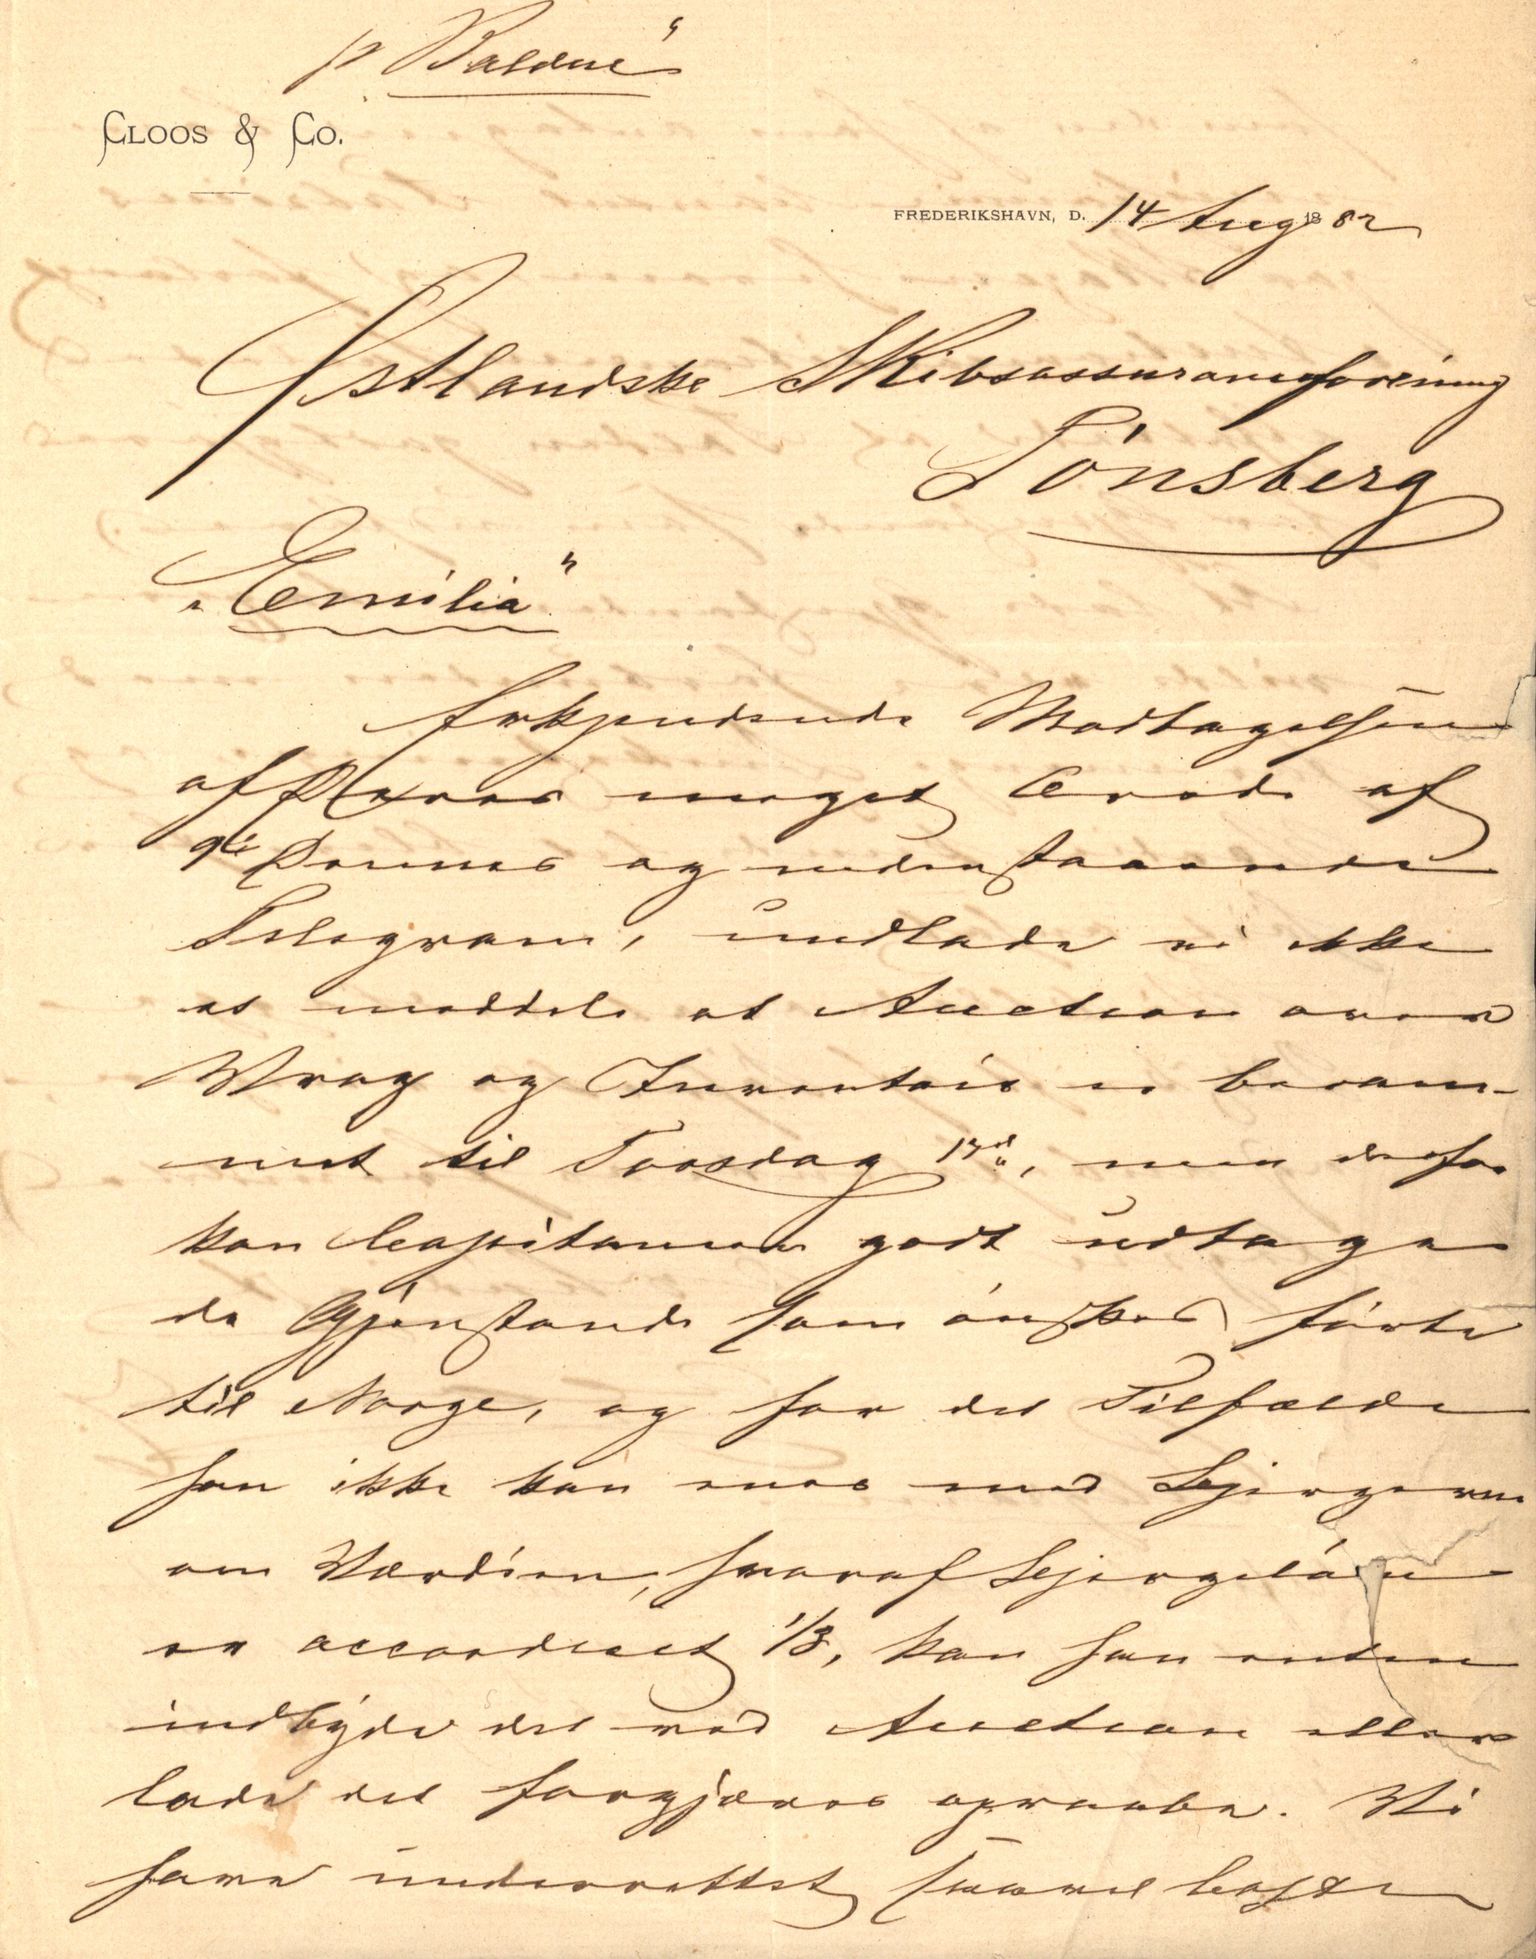 p "Baldur"
CLOOS & CO.
FREDERIKSHAVN, D. 14 Aug 1882
Østlandske Skibsassuranceforening
Tönsberg
"Emilia"
Erkjendende Modtagelsen
af Deres meget Ærede af
9de Dennes og nedenstaaende
Telegram, undlade vi ikke
at meddele at Auction over
Vrag og Inventar er beram-
met til Torsdag 17d, men derfor
kan Capitainen godt udtage
de Gjenstande som önskes förte
til Norge, og for det Tilfælde
han ikke kan enes med Bjergerne
om Værdien, hvoraf Bjergelön
er accorderet 1/3, kan han enten
indbyde det ved Auction eller
lade det forgjæves opraabe. Vi
have underrettet saavel Capt